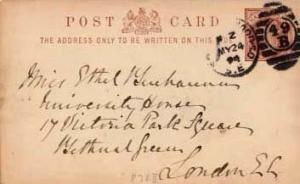 POST CARD
THE ADDRESS ONLY TO BE WRITTEN ON THIS
Z
MY 24
94
S.E.
49
B
Miss Ethel Buchanan
University House
17 Victoria Park Square
Bethnal Green
London E.C.